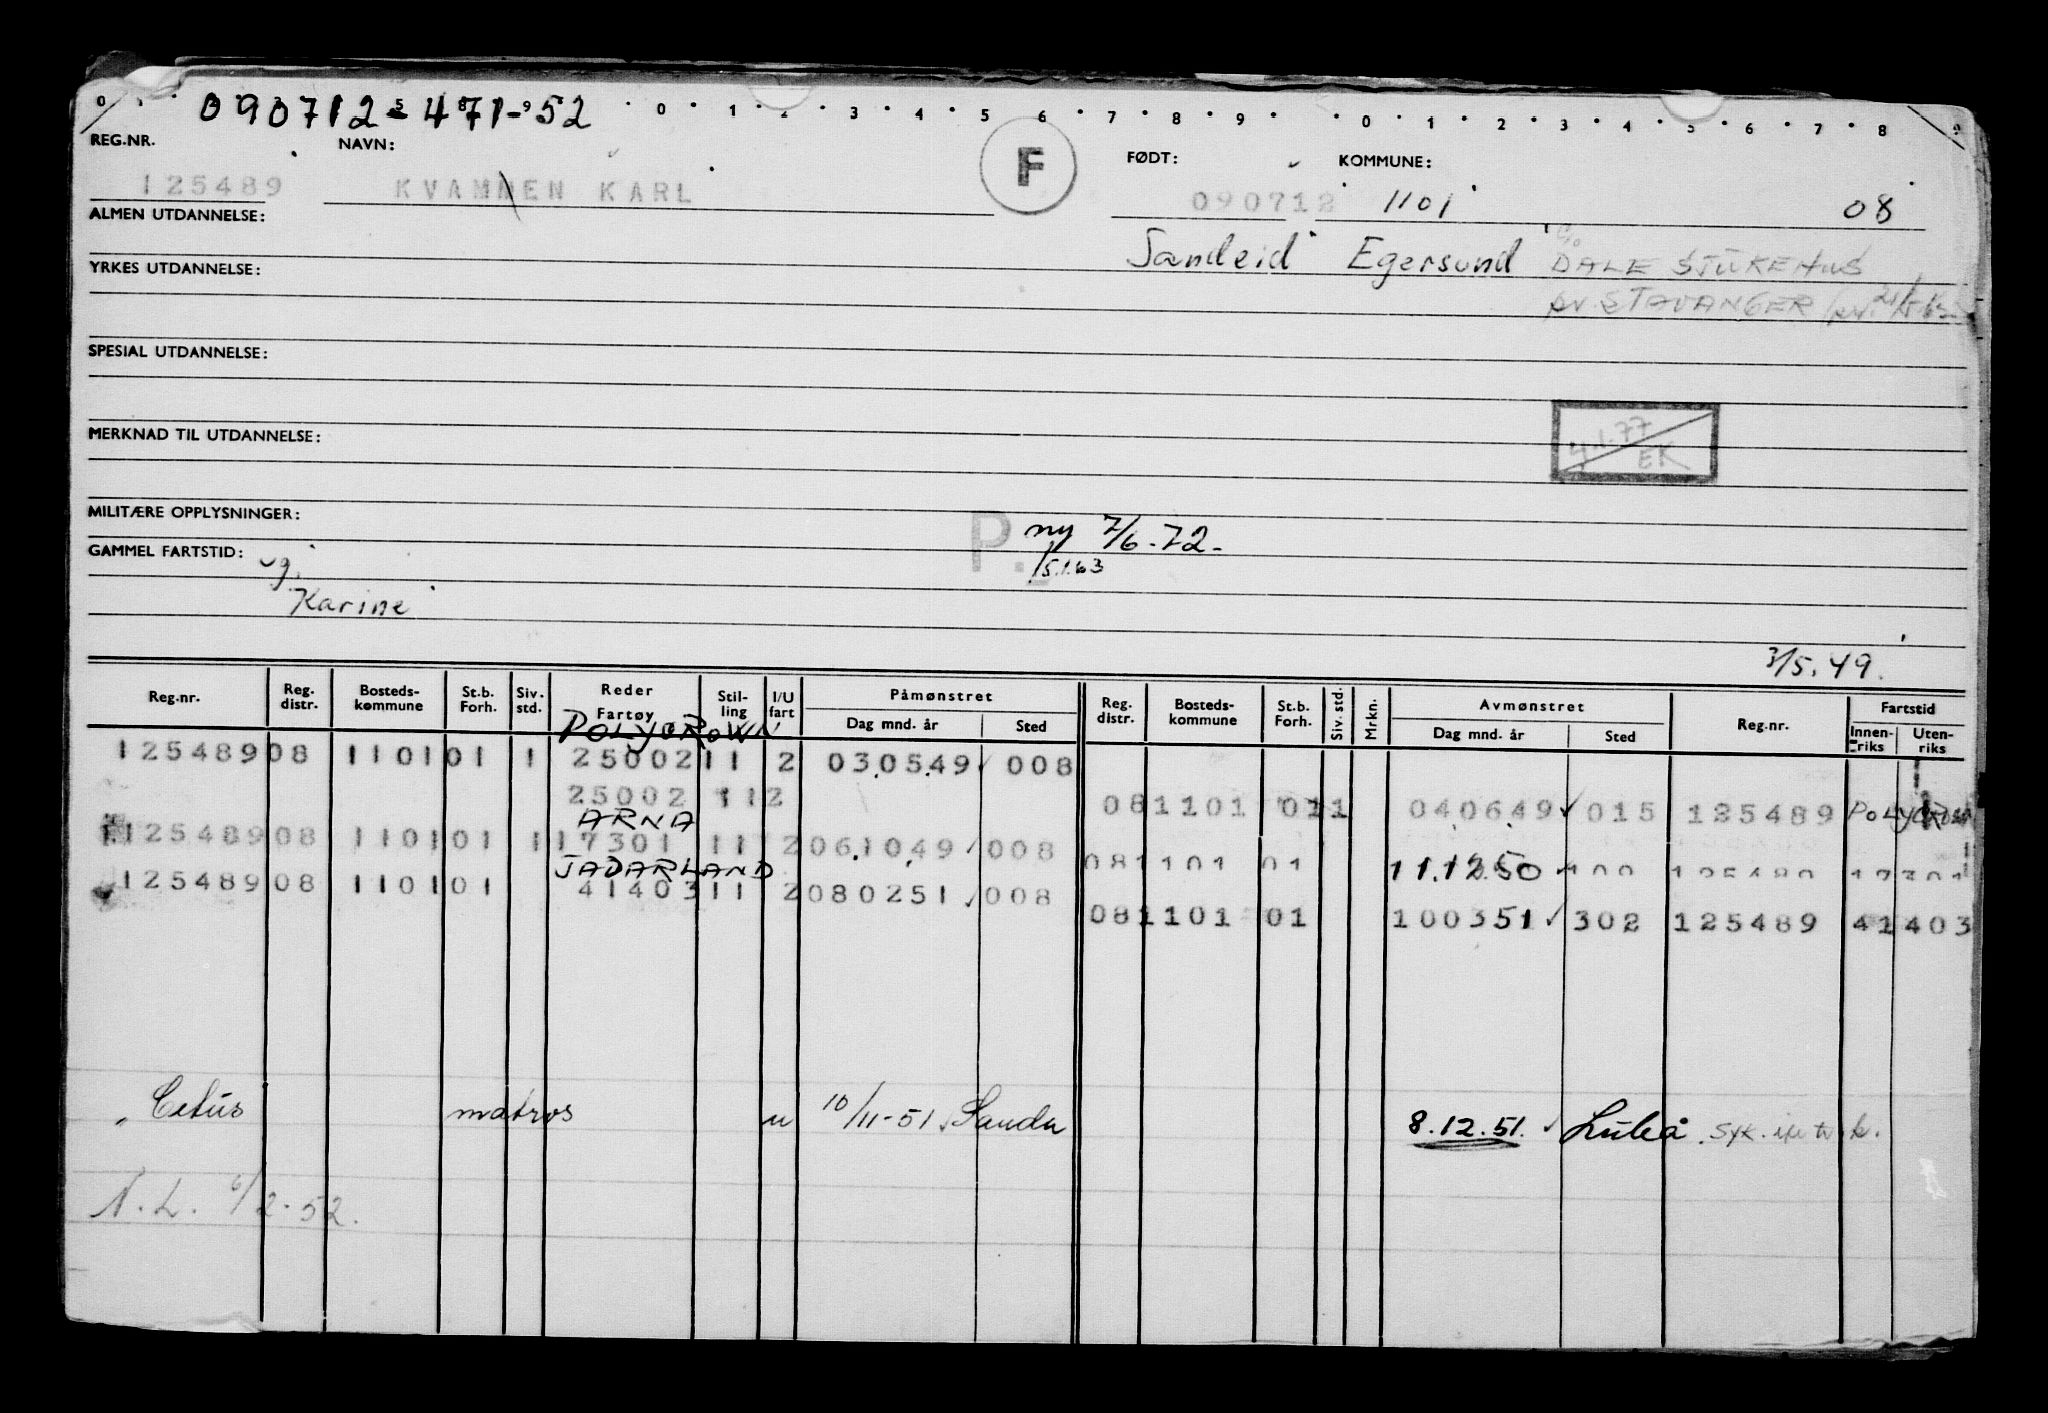 090712-471-52
0 1 2 3 4 5 6 7 8 9 0 1 2 3 4 5 6 7 8 9
REG.NR. NAVN: F FØDT: KOMMUNE:
125489 KVAMMEN KARL 090712 1101 08
ALMEN UTDANNELSE:
Sandeid Egersund c/o DALE SJUKEHUS
YRKES UTDANNELSE:
pr STAVANGER
SPESIAL UTDANNELSE:
4.1.77
EK
MERKNAD TIL UTDANNELSE:
MILITÆRE OPPLYSNINGER:
P. ny 7/6-72-
15.1.63
GAMMEL FARTSTID: ug.
Karine
3/5.49.
Reg.nr. Reg. distr. Bosteds-kommune St.b. Forh. Siv. std. Reder Fartøy Stil-ling I/U fart Påmønstret Dag mnd. år Sted Reg. distr. Bosteds-kommune St.b. Forh. Siv. std. Mrkn. Avmønstret Dag mnd. år Sted Reg.nr. Fartstid Innen-riks Uten-riks
POLYCROWN
125489 08 1101 01 1 25002 11 2 030549 008
25002 11 2 08 1101 01 1 040649 015 125489 POLYCROWN
ARNA
125489 08 1101 01 1 17301 11 2 061049 008
JADARLAND 08 1101 01 11.12.50 100 125489 17301
125489 08 1101 01 41403 11 2 080251 008
08 1101 01 100351 302 125489 41403
Cetus matros u 10/11-51 Sauda 8.12.51. Luleå. syk.
N.L. 6/2-52.